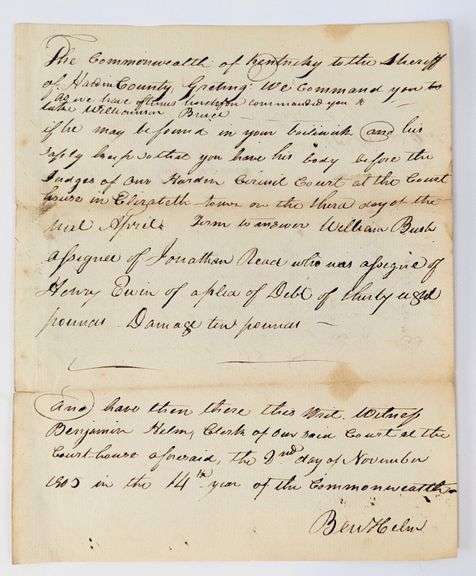 The Commonwealth of Kentucky to the Sheriff
of Hardin County Greting We Command you to
as we have often times heretofore commanded you to
take Williamson Bruce
if he may be found in your bailiwick and his
safely keep so that you have his body before the
Judges of our Hardin Circuit Court at the Court
house in Elizabeth town on the third day of the
next April Term to answer William Bush
assignee of Jonathan Read who was assigne of
Henry Ewin of a plea of Debt of thirty eight
pounds Damage ten pounds
And have then there this Writ. Witness
Benjamin Helm, Clerk of our said Court at the
Courthouse aforesaid, the 2nd day of November
in the 14th year of the Commonwealth
Ben Helm